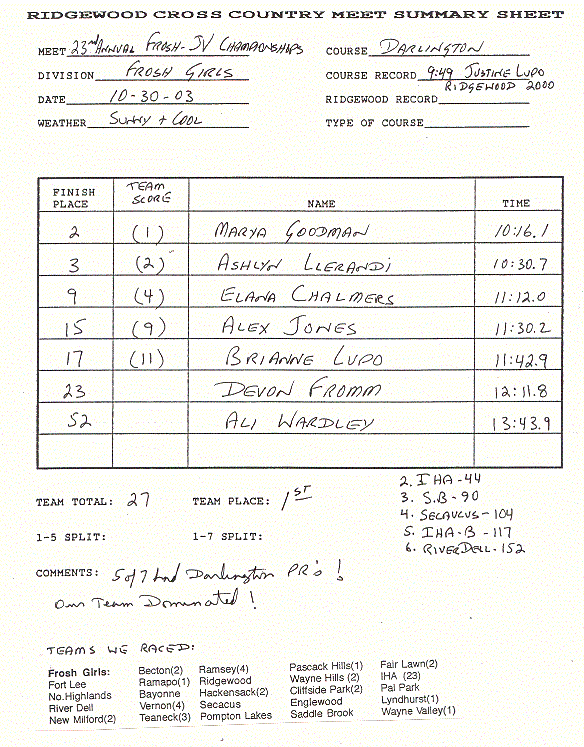 RIDGEWOOD CROSS COUNTRY MEET SUMMARY SHEET
MEET 23rd Annual Frosh-JV Championships
COURSE Darlington
DIVISION Frosh Girls
COURSE RECORD 9:49 Justine Lupo
Ridgewood 2000
DATE 10-30-03
RIDGEWOOD RECORD
WEATHER Sunny + Cool
TYPE OF COURSE
FINISH PLACE TEAM SCORE NAME TIME
2 (1) Marya Goodman 10:16.1
3 (2) Ashlyn Llerandi 10:30.7
9 (4) Elana Chalmers 11:12.0
15 (9) Alex Jones 11:30.2
17 (11) Brianne Lupo 11:42.9
23 Devon Fromm 12:11.8
52 Ali Wardley 13:43.9
TEAM TOTAL: 27 TEAM PLACE: 1ST
1-5 SPLIT: 1-7 SPLIT:
2. IHA - 44
3. S.B - 90
4. Secaucus - 104
5. IHA-B - 117
6. River Dell - 152
COMMENTS: 5 of 7 had Darlington PR's!
Our Team Dominated!
TEAMS WE RACED:
Frosh Girls:
Fort Lee
No.Highlands
River Dell
New Milford(2)
Becton(2)
Ramapo(1)
Bayonne
Vernon(4)
Teaneck(3)
Ramsey(4)
Ridgewood
Hackensack(2)
Secacus
Pompton Lakes
Pascack Hills(1)
Wayne Hills (2)
Cliffside Park(2)
Englewood
Saddle Brook
Fair Lawn(2)
IHA (23)
Pal Park
Lyndhurst(1)
Wayne Valley(1)